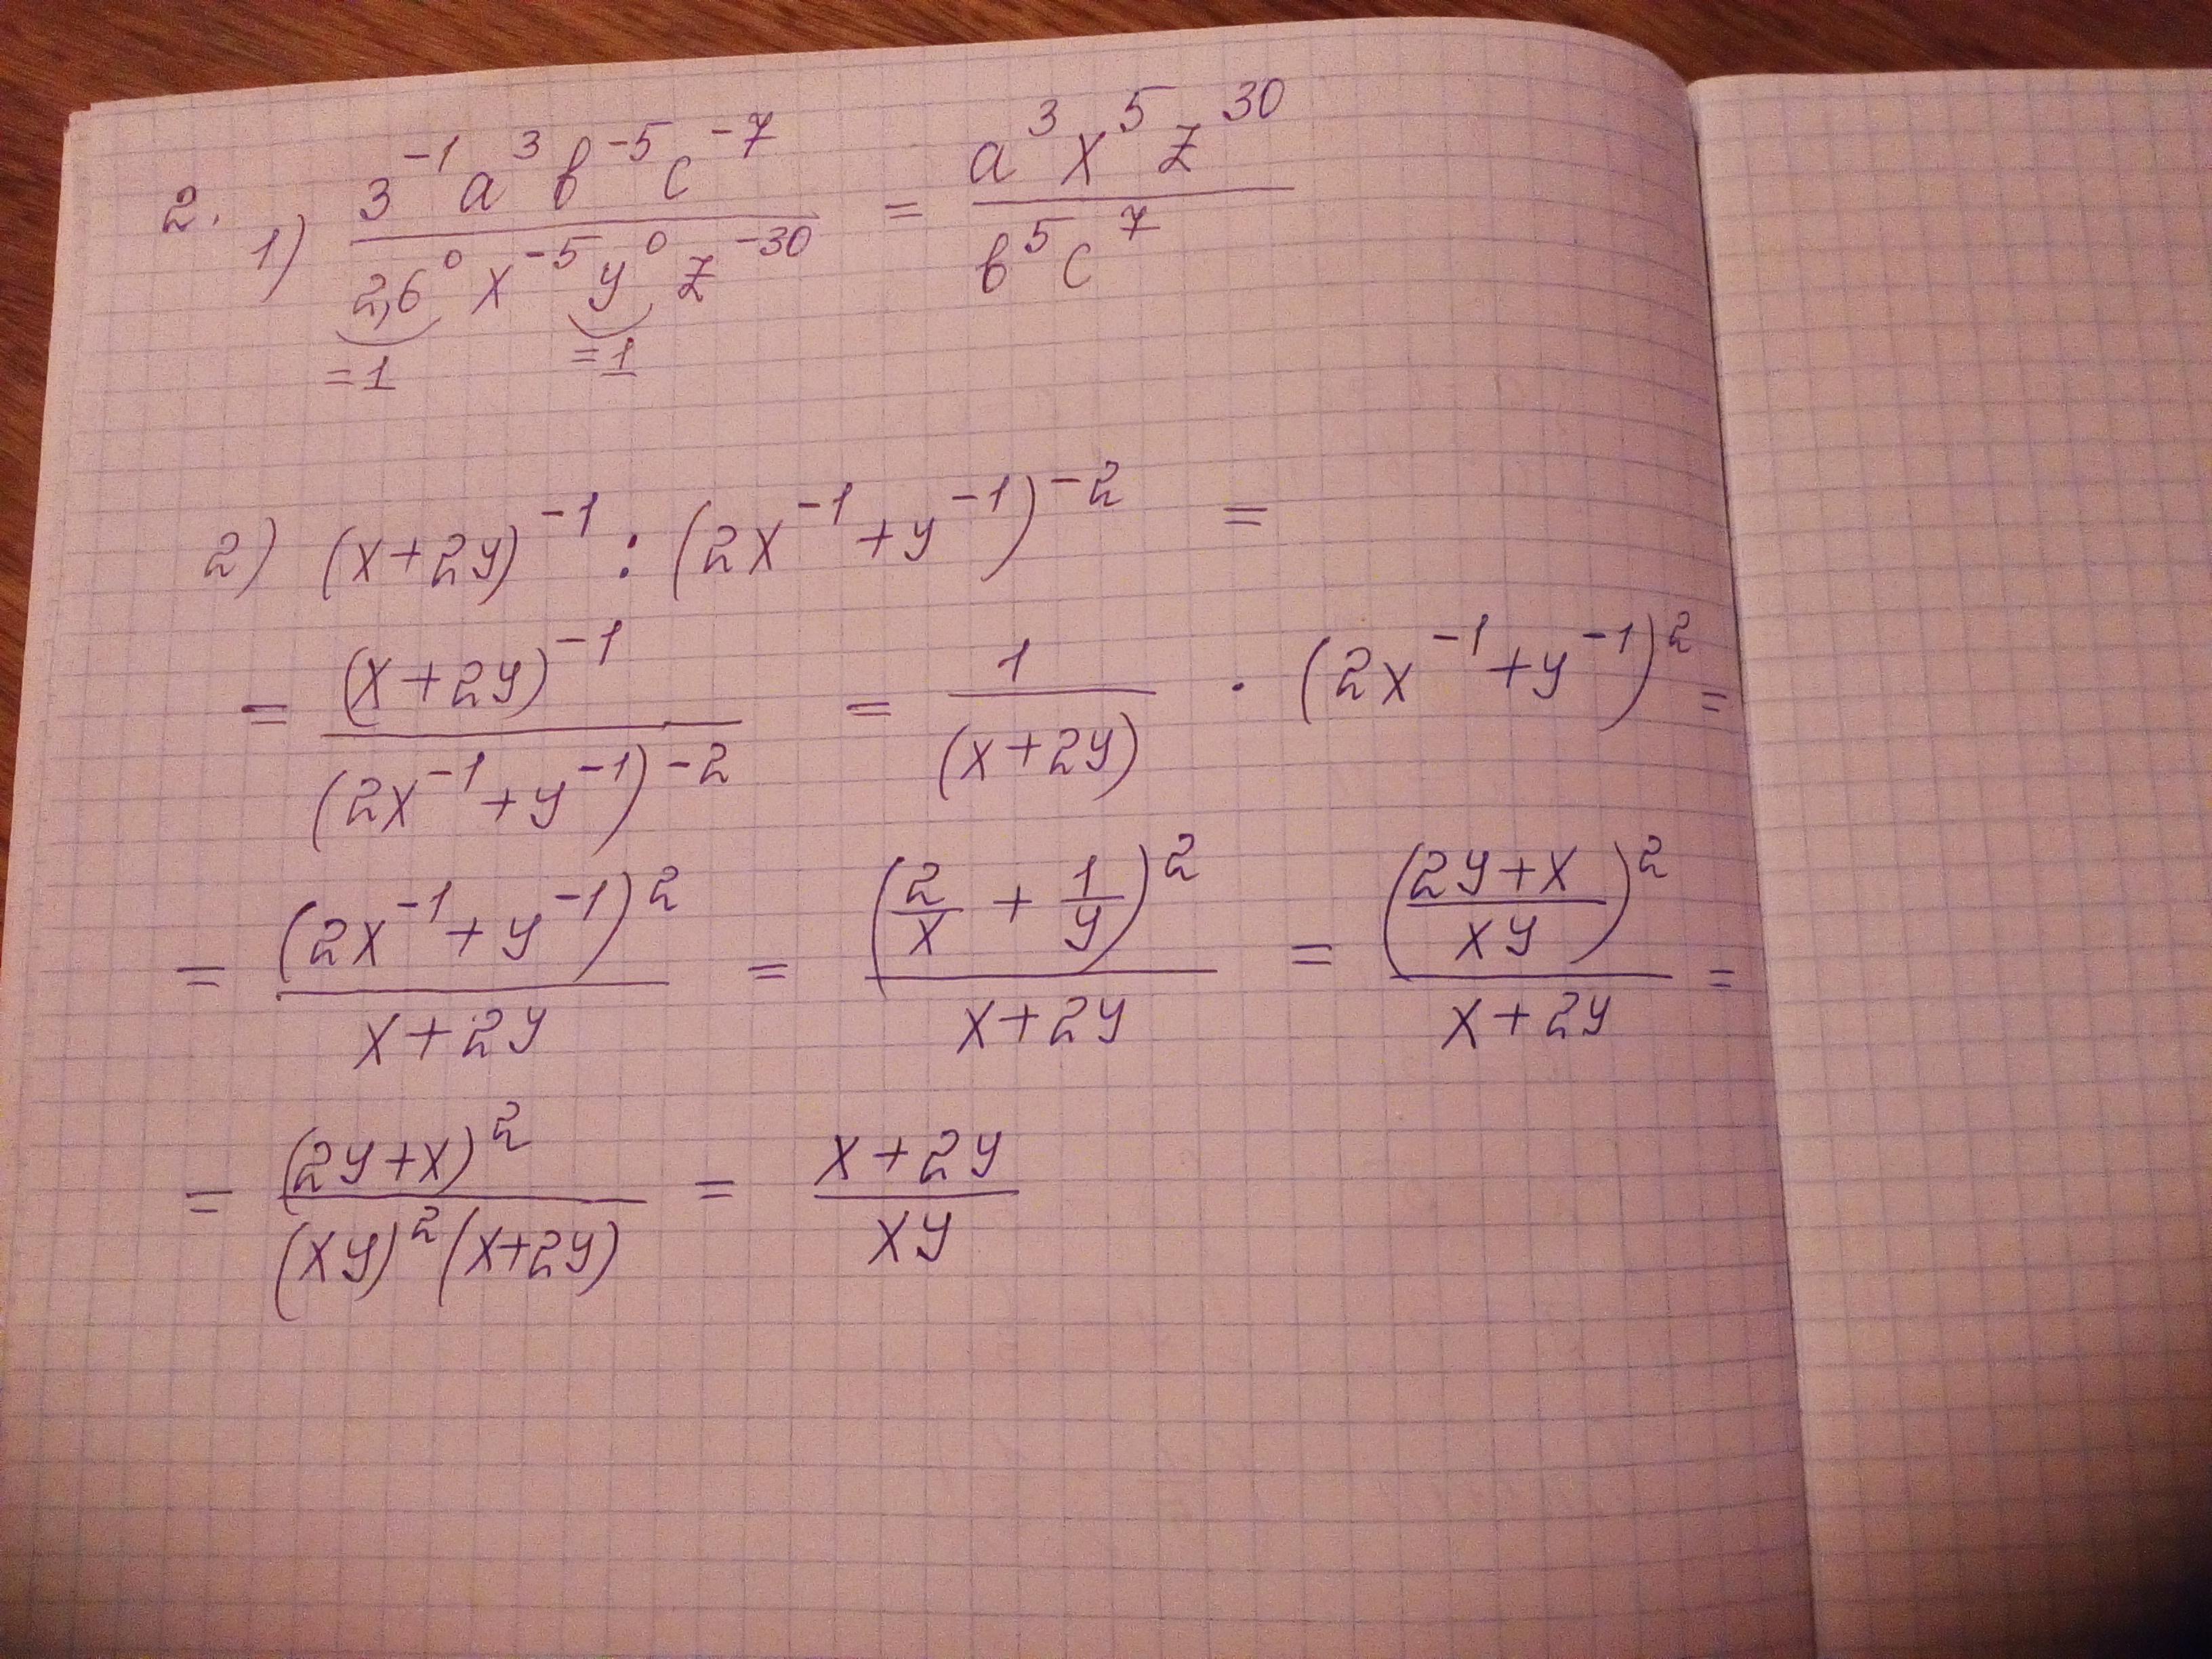 2. 1) \frac{3^{-1} a^3 b^{-5} c^{-7}}{2,6^0 x^{-5} y^0 z^{-30}} = \frac{a^3 x^5 z^{30}}{b^5 c^7}
=1 =1
2) (x+2y)^{-1} : (2x^{-1}+y^{-1})^{-2} =
= \frac{(x+2y)^{-1}}{(2x^{-1}+y^{-1})^{-2}} = \frac{1}{(x+2y)} · (2x^{-1}+y^{-1})^2 =
= \frac{(2x^{-1}+y^{-1})^2}{x+2y} = \frac{(\frac{2}{x}+\frac{1}{y})^2}{x+2y} = \frac{(\frac{2y+x}{xy})^2}{x+2y} =
= \frac{(2y+x)^2}{(xy)^2(x+2y)} = \frac{x+2y}{xy}